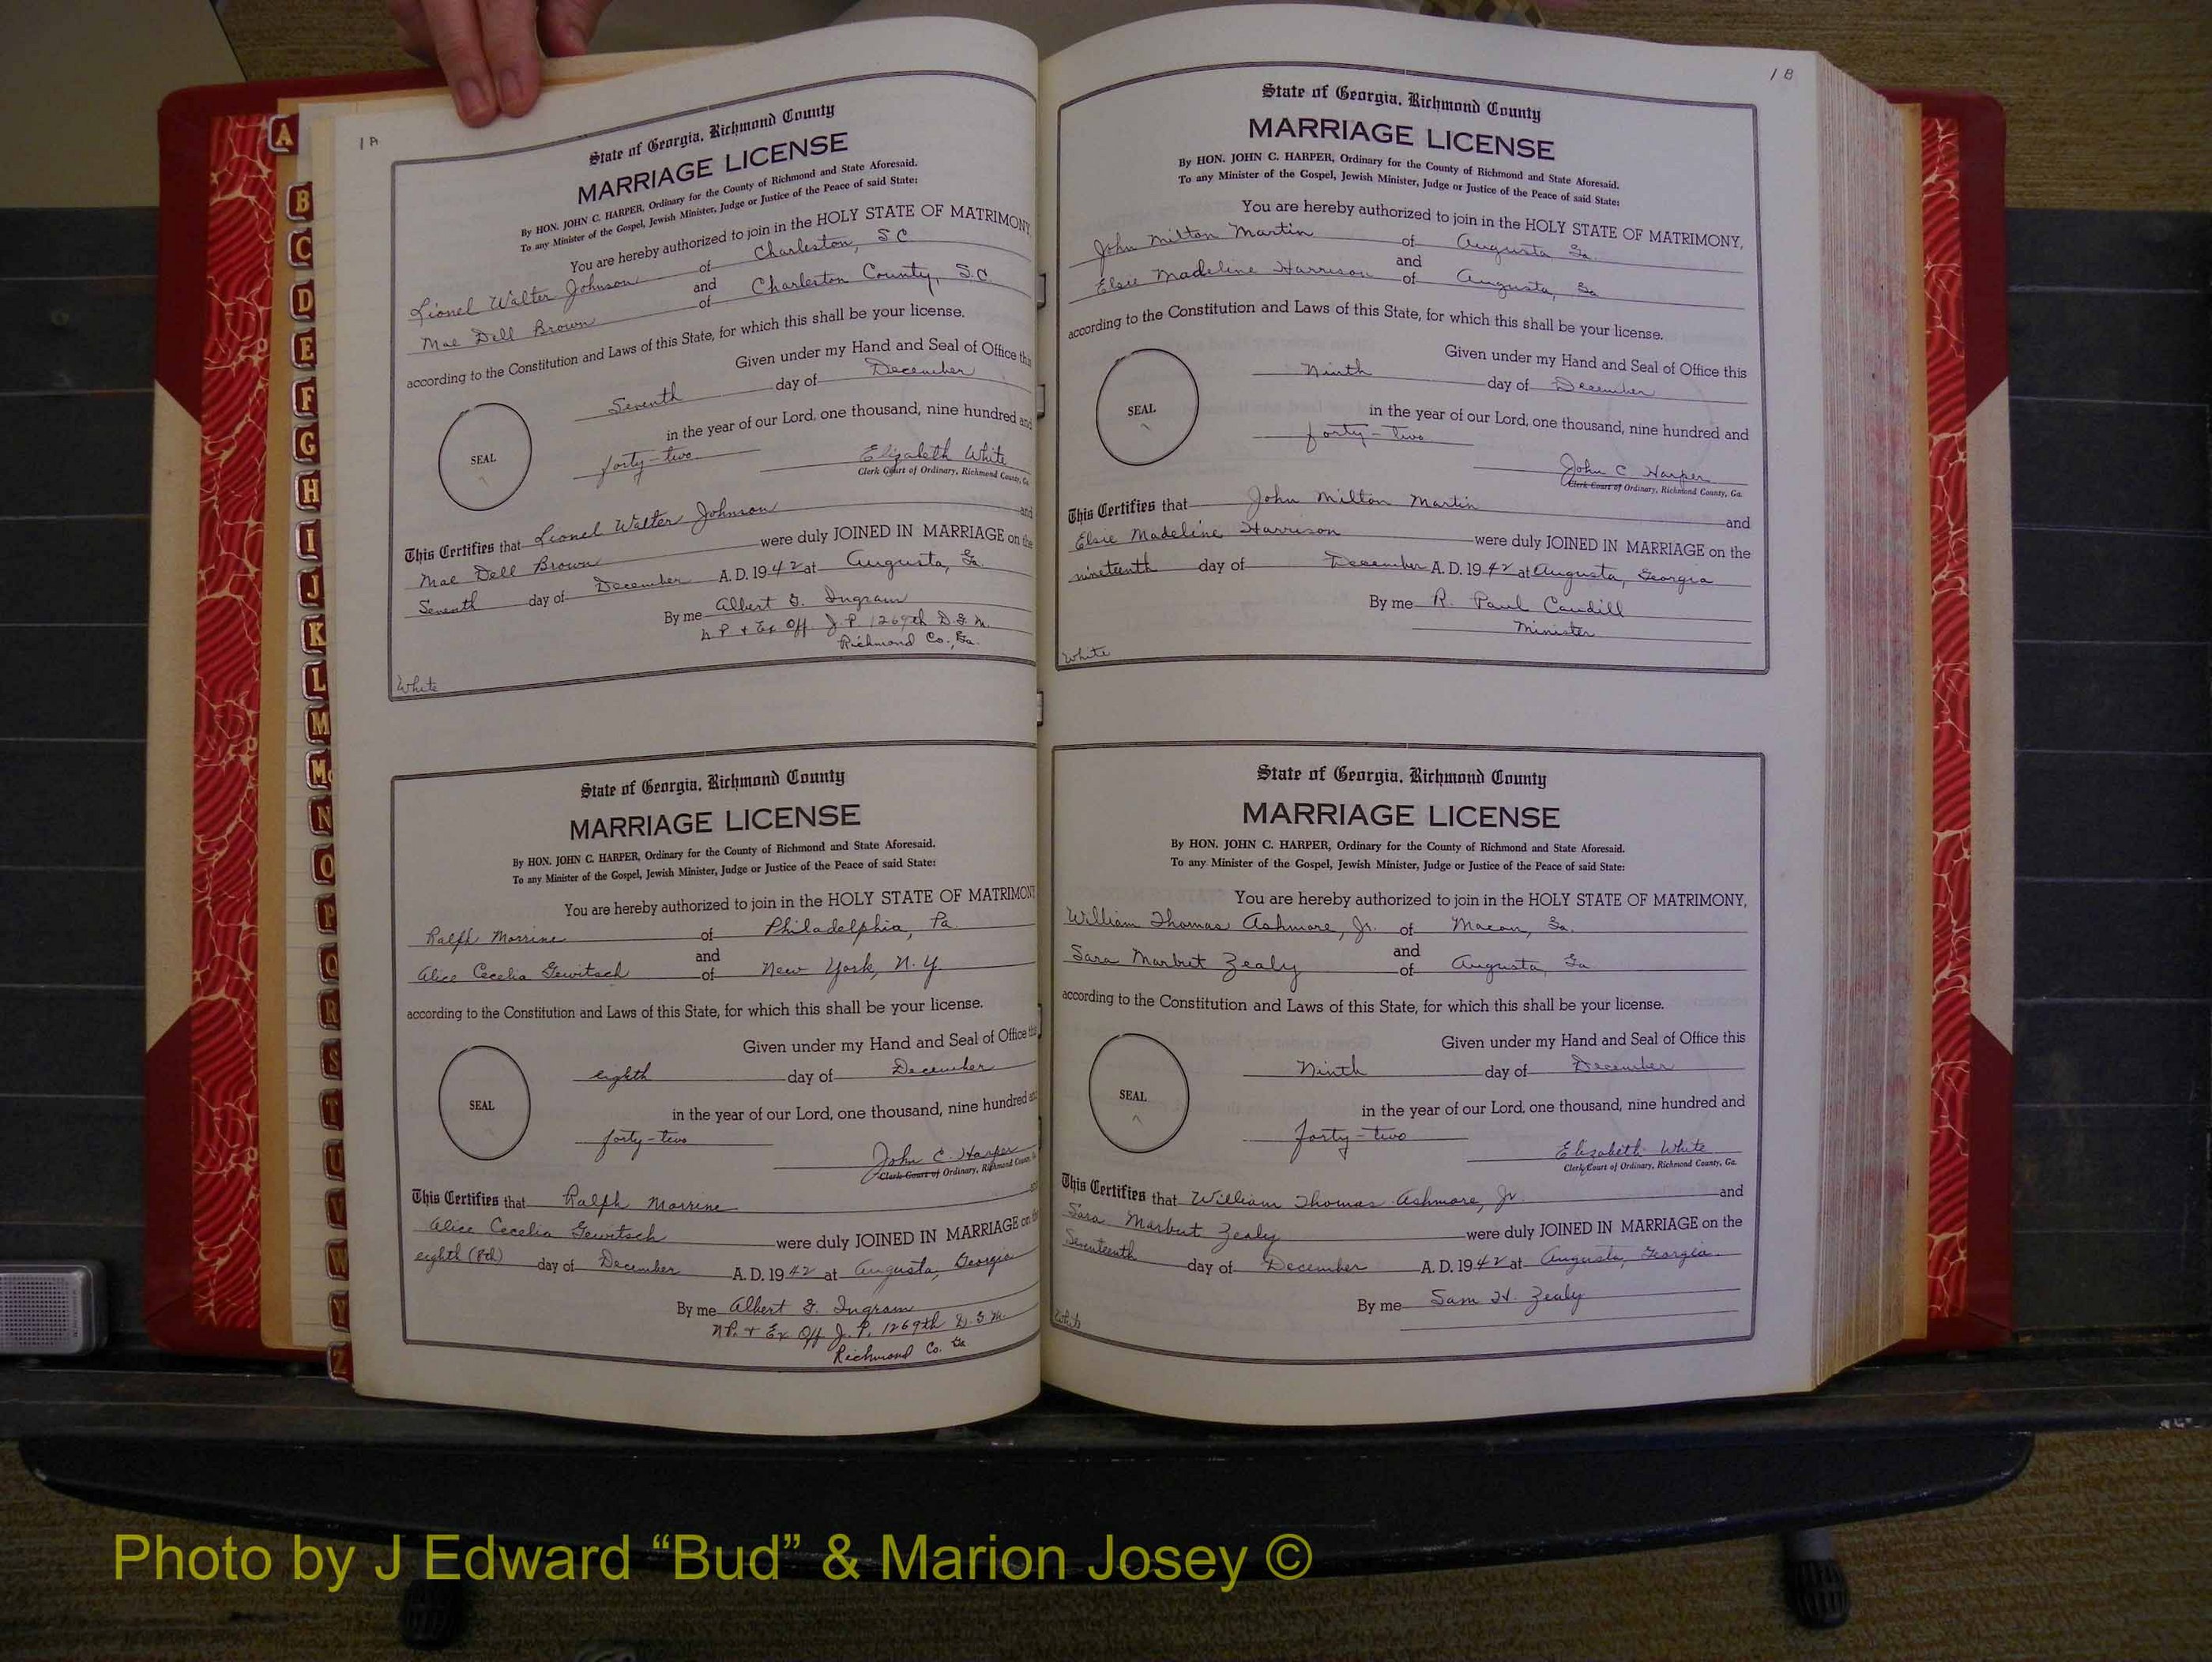 1A
State of Georgia, Richmond County
MARRIAGE LICENSE
By HON. JOHN C. HARPER, Ordinary for the County of Richmond and State Aforesaid.
To any Minister of the Gospel, Jewish Minister, Judge or Justice of the Peace of said State:
You are hereby authorized to join in the HOLY STATE OF MATRIMONY
Lionel Walter Johnson of Charleston, S C
and
Mae Dell Brown of Charleston County, S.C.
according to the Constitution and Laws of this State, for which this shall be your license.
Given under my Hand and Seal of Office this
Seventh day of December
in the year of our Lord, one thousand, nine hundred and
SEAL
forty-two
Elizabeth White
Clerk Court of Ordinary, Richmond County, Ga.
This Certifies that Lionel Walter Johnson and
Mae Dell Brown were duly JOINED IN MARRIAGE on the
Seventh day of December A. D. 1942 at Augusta, Ga.
By me Albert G. Ingram
N. P. + Ex Off. J. P. 1269th D. G. M.
Richmond Co., Ga.
White
State of Georgia, Richmond County
MARRIAGE LICENSE
By HON. JOHN C. HARPER, Ordinary for the County of Richmond and State Aforesaid.
To any Minister of the Gospel, Jewish Minister, Judge or Justice of the Peace of said State:
You are hereby authorized to join in the HOLY STATE OF MATRIMONY
Ralph Morrine of Philadelphia, Pa.
and
Alice Cecelia Gewitsch of New York, N. Y.
according to the Constitution and Laws of this State, for which this shall be your license.
Given under my Hand and Seal of Office this
eighth day of December
in the year of our Lord, one thousand, nine hundred and
SEAL
forty-two
John C. Harper
Clerk Court of Ordinary, Richmond County
This Certifies that Ralph Morrine and
Alice Cecelia Gewitsch were duly JOINED IN MARRIAGE on the
eighth (8th) day of December A. D. 1942 at Augusta, Georgia
By me Albert G. Ingram
N.P. + Ex Off J. P. 1269th D. G. M.
Richmond Co. Ga.
1B
State of Georgia, Richmond County
MARRIAGE LICENSE
By HON. JOHN C. HARPER, Ordinary for the County of Richmond and State Aforesaid.
To any Minister of the Gospel, Jewish Minister, Judge or Justice of the Peace of said State:
You are hereby authorized to join in the HOLY STATE OF MATRIMONY,
John Milton Martin of Augusta Ga.
and
Elsie Madeline Harrison of Augusta, Ga
according to the Constitution and Laws of this State, for which this shall be your license.
Given under my Hand and Seal of Office this
Ninth day of December
SEAL
in the year of our Lord, one thousand, nine hundred and
forty-two
John C. Harper
Clerk Court of Ordinary, Richmond County, Ga.
This Certifies that John Milton Martin and
Elsie Madeline Harrison were duly JOINED IN MARRIAGE on the
nineteenth day of December A. D. 1942 at Augusta, Georgia
By me R. Paul Caudill
Minister
White
State of Georgia, Richmond County
MARRIAGE LICENSE
By HON. JOHN C. HARPER, Ordinary for the County of Richmond and State Aforesaid.
To any Minister of the Gospel, Jewish Minister, Judge or Justice of the Peace of said State:
You are hereby authorized to join in the HOLY STATE OF MATRIMONY,
William Thomas Ashmore, Jr. of Macon, Ga.
and
Sara Marbut Zealy of Augusta, Ga
according to the Constitution and Laws of this State, for which this shall be your license.
Given under my Hand and Seal of Office this
Ninth day of December
SEAL
in the year of our Lord, one thousand, nine hundred and
forty-two
Elizabeth White
Clerk Court of Ordinary, Richmond County, Ga.
This Certifies that William Thomas Ashmore, Jr and
Sara Marbut Zealy were duly JOINED IN MARRIAGE on the
Seventeenth day of December A. D. 1942 at Augusta, Georgia.
By me Sam H. Zealy
White
A
B
C
D
E
F
G
H
I
J
K
L
M
Mc
N
O
P
Q
R
S
T
U
V
W
Y
Z
Photo by J Edward “Bud” & Marion Josey ©